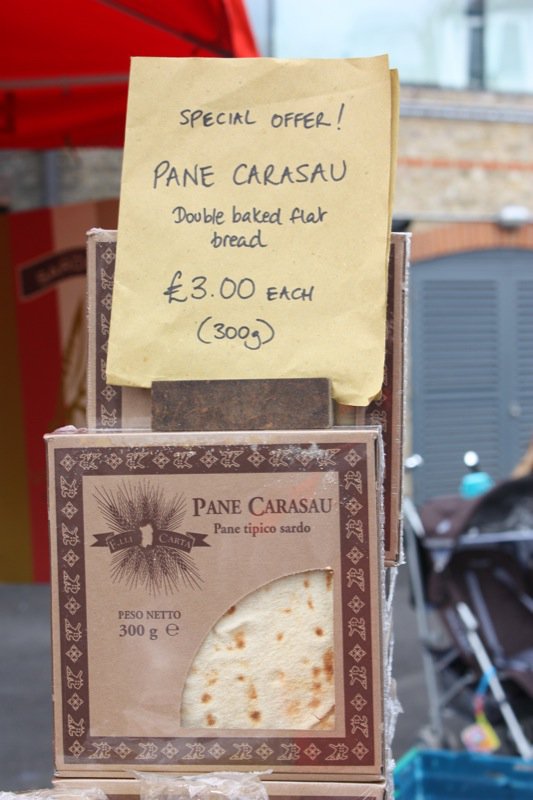 SPECIAL OFFER!
PANE CARASAU
Double baked flat
bread
£3.00 EACH
(300g)
PANE CARASAU
Pane tipico sardo
F.LLI CARTA
PESO NETTO
300 g ℮